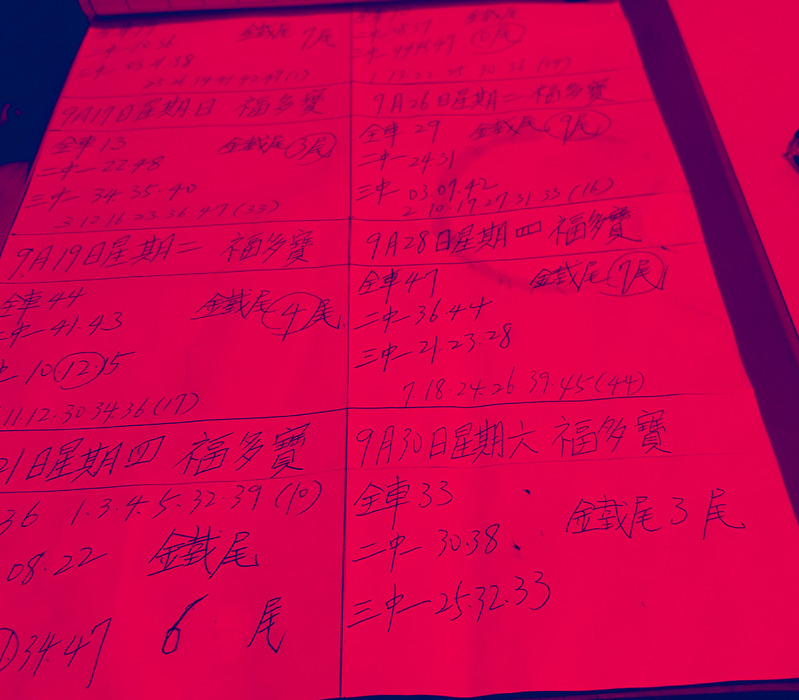 鐵尾 7尾
25 26
9月17日星期日 福多寶
全車13
金鐵尾 3尾
二中一 22 48
三中一 34.35.40
3.12.16.23.36.47(33)
9月19日星期二 福多寶
全車44
金鐵尾 4尾
二中一41.43
中一10.12.15
11.12.30 34 36(17)
21日星期四 福多寶
36 1.3.4.5.32 39(10)
08.22 金鐵尾
34.47 6尾
9月26日星期二 福多寶
全車29
金鐵尾 9尾
二中一 24 31
三中一 03.09.42
2 10 17 27 31 33(16)
9月28日星期四 福多寶
全車47
金鐵尾 7尾
二中一36.44
三中一21.23.28
7.18.24.26 39.45(44)
9月30日星期六 福多寶
全車33
金鐵尾3尾
二中一30.38
三中一25.32.33